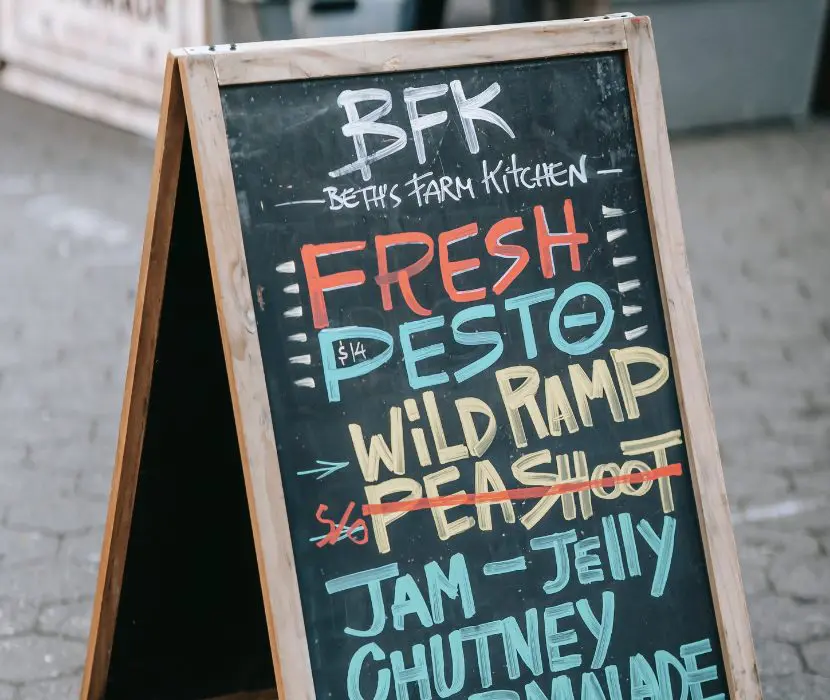 BFK
BETH'S FARM KITCHEN
FRESH
PESTO
$14
WILD RAMP
S/O PEA SHOOT
JAM - JELLY
CHUTNEY